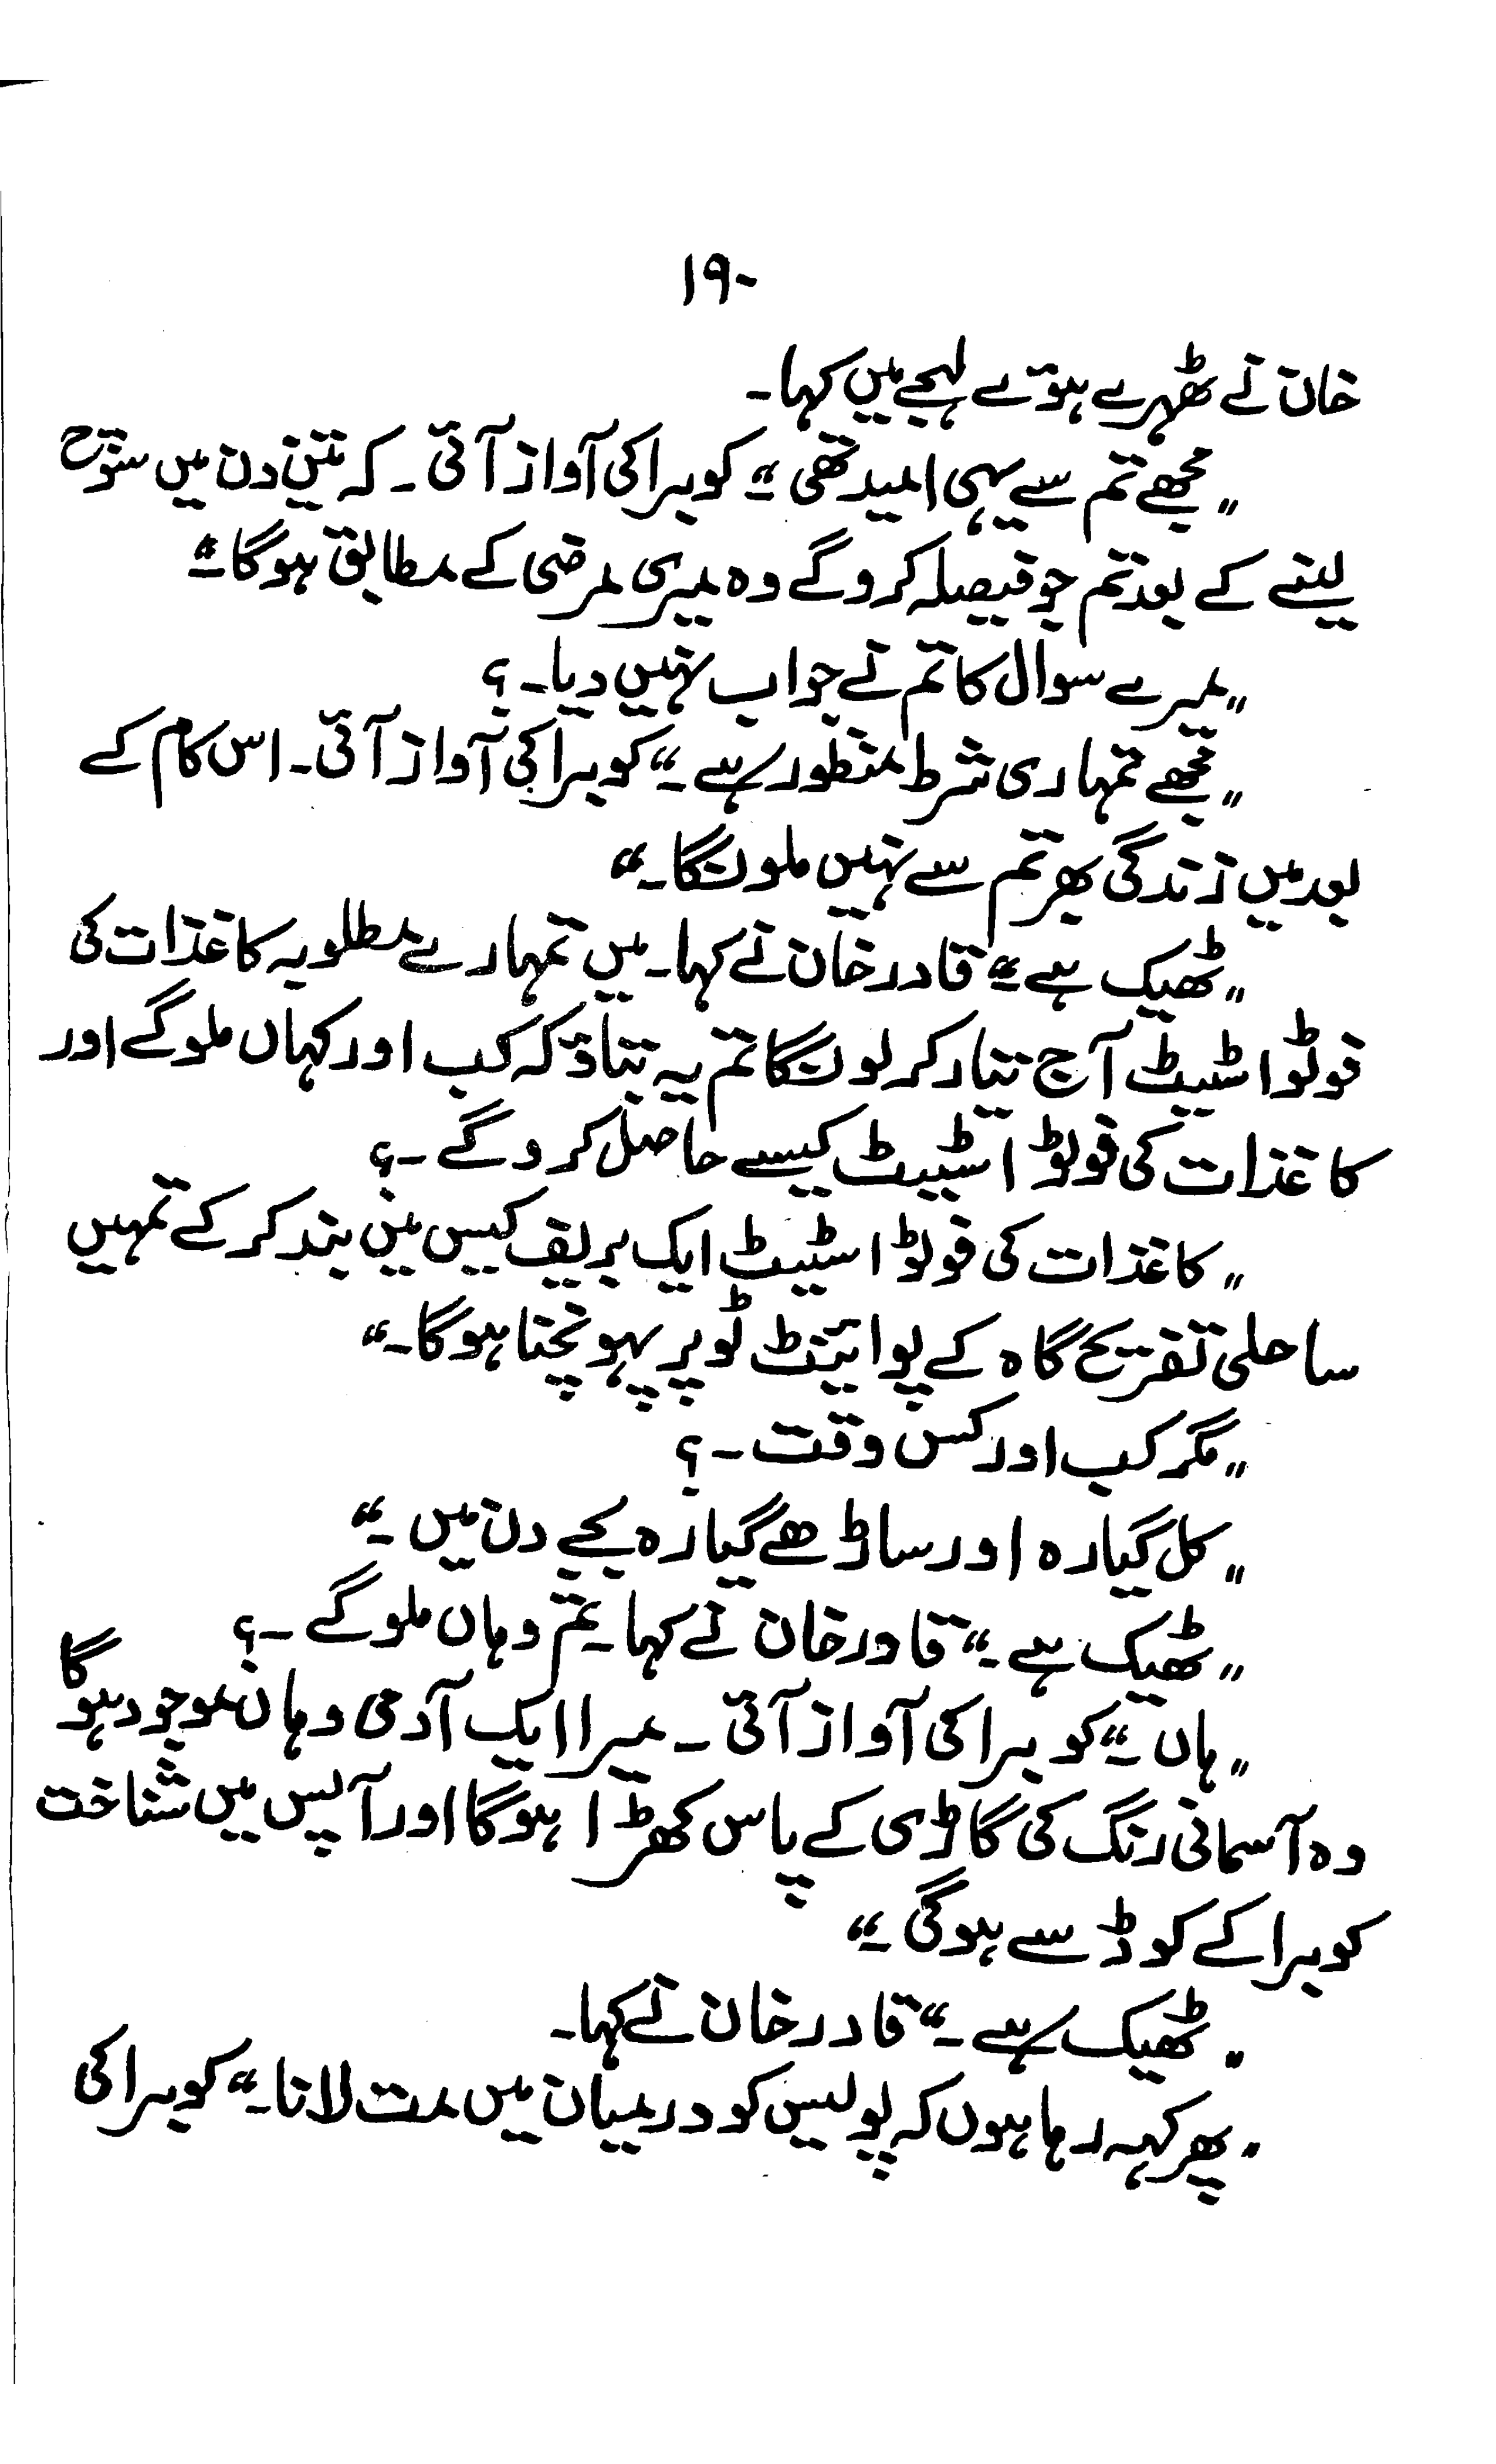 ۱۹۰
خان نے ٹھہرے ہوئے لہجے میں کہا۔
"مجھے تم سے یہی امید تھی۔" کوبرا کی آواز آئی۔ کہ تین دن میں سوچ
لینے کے بعد تم جو فیصلہ کروگے وہ میری مرضی کے مطابق ہوگا۔"
"میرے سوال کا تم نے جواب نہیں دیا۔؟
"مجھے تمہاری شرط منظور ہے۔" کوبرا کی آواز آئی۔ اس کام کے
بعد میں زندگی بھر تم سے نہیں ملونگا۔"
"ٹھیک ہے۔" قادر خان نے کہا۔ میں تمہارے مطلوبہ کاغذات کی
فوٹو اسٹیٹ آج تیار کرلونگا تم یہ بتاؤ کہ کب اور کہاں ملوگے اور
کاغذات کی فوٹو اسٹیٹ کیسے حاصل کروگے۔؟
"کاغذات کی فوٹو اسٹیٹ ایک بریف کیس میں بند کرکے تمہیں
ساحلی تفریح گاہ کے پوائینٹ ٹو پر پہونچنا ہوگا۔"
"مگر کب اور کس وقت۔؟
"کل گیارہ اور ساڑھے گیارہ بجے دن میں۔"
"ٹھیک ہے۔" قادر خان نے کہا۔ تم وہاں ملوگے۔؟
"ہاں۔" کوبرا کی آواز آئی۔ میرا ایک آدمی وہاں موجود ہوگا
وہ آسمانی رنگ کی گاڑی کے پاس کھڑا ہوگا اور آپس میں شناخت
کوبرا کے کوڈ سے ہوگی۔"
"ٹھیک ہے۔" قادر خان نے کہا۔
"پھر کہہ رہا ہوں کہ پولیس کو درمیان میں مت لانا۔" کوبرا کی